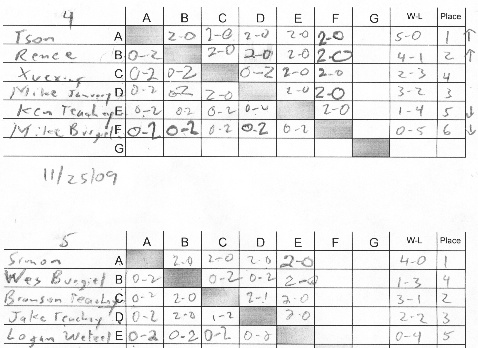 4 A B C D E F G W-L Place
Tson A 2-0 2-0 2-0 2-0 2-0 5-0 1 ↑
Renee B 0-2 2-0 2-0 2-0 2-0 4-1 2 ↑
C 0-2 0-2 0-2 2-0 2-0 2-3 4
Mike D 0-2 0-2 2-0 2-0 2-0 3-2 3
Ken Teachey E 0-2 0-2 0-2 0-2 2-0 1-4 5 ↓
Mike Burgiel F 0-2 0-2 0-2 0-2 0-2 0-5 6 ↓
G
11/25/09
5 A B C D E F G W-L Place
Simon A 2-0 2-0 2-0 2-0 4-0 1
Wes Burgiel B 0-2 0-2 0-2 2-0 1-3 4
Branson Teachey C 0-2 2-0 2-1 2-0 3-1 2
Jake Teachey D 0-2 2-0 1-2 2-0 2-2 3
Logan Wetzel E 0-2 0-2 0-2 0-2 0-4 5